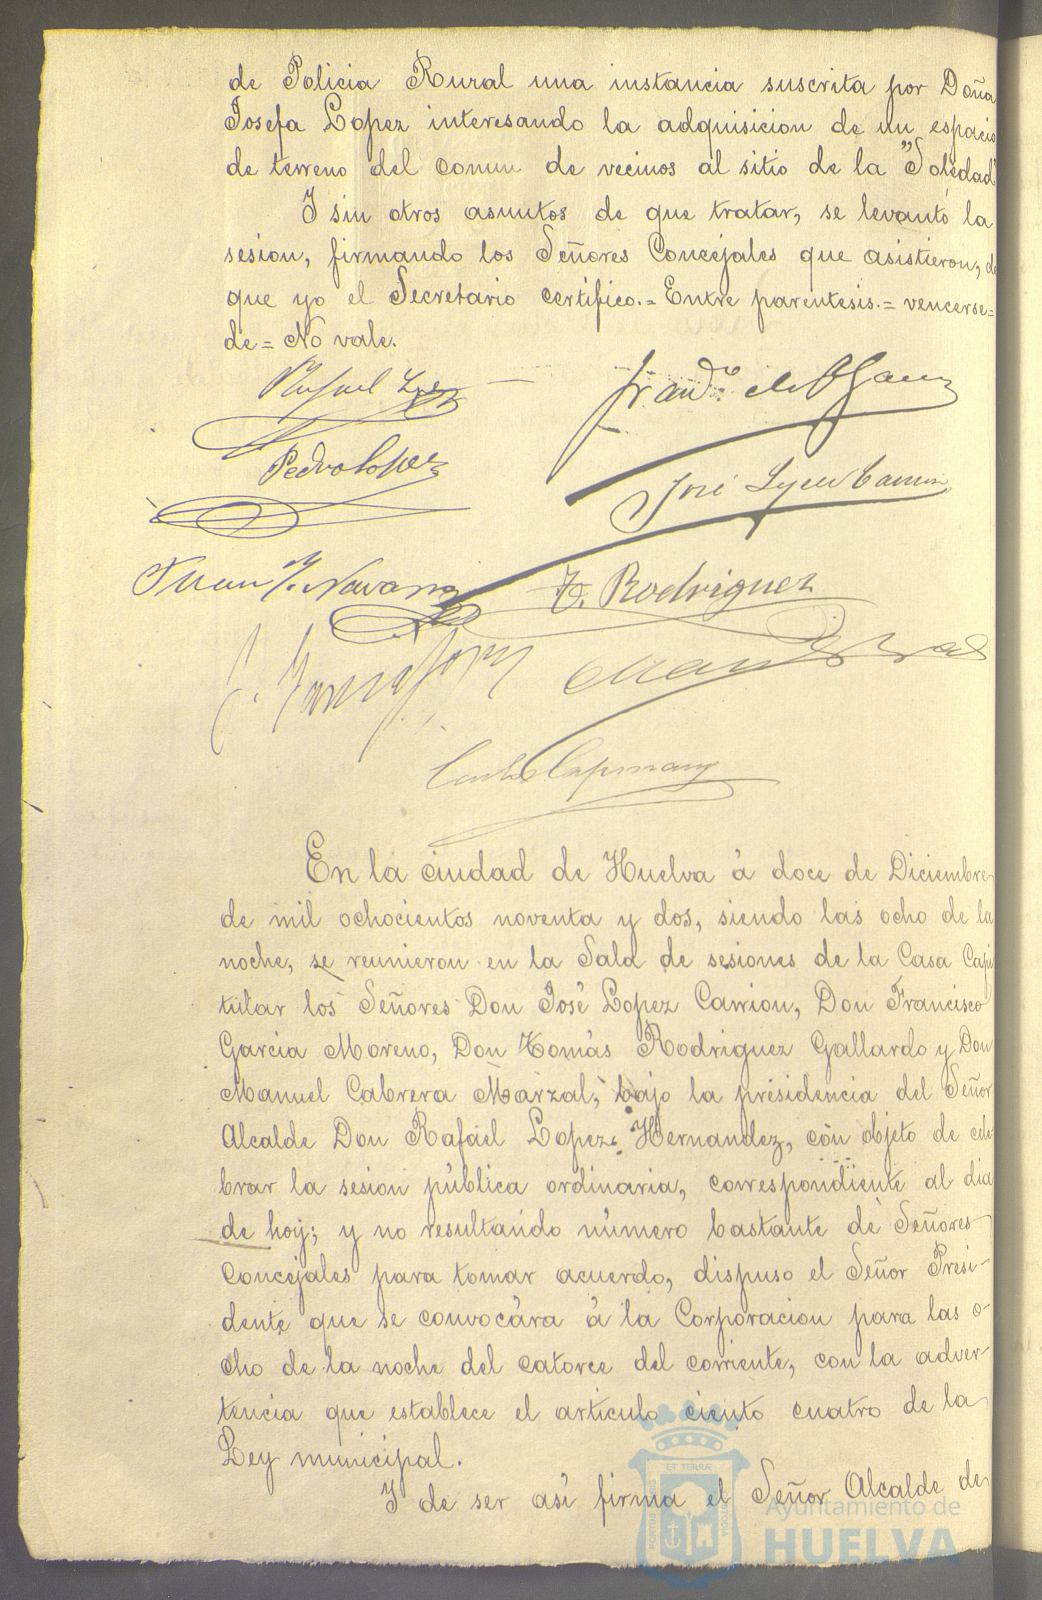 de Policia Rural una instancia suscrita por Doña
Josefa Lopez interesando la adquisicion de un espacio
de terreno del comun de vecinos al sitio de la "Soledad"
Y sin otros asuntos de que tratar, se levantó la
sesion, firmando los Señores Concejales que asistieron, de
que yo el Secretario certifico.= Entre parentesis.= vencerse=
de= No vale.
Rafael Lopez
Pedro Lopez
José Lopez Carrion
Juan Navarro
T. Rodriguez
Carlos Capmany
En la ciudad de Huelva á doce de Diciembre
de mil ochocientos noventa y dos, siendo las ocho de la
noche, se reunieron en la Sala de sesiones de la Casa Capi
tular los Señores Don José Lopez Carrion, Don Francisco
Garcia Moreno, Don Tomás Rodriguez Gallardo y Don
Manuel Cabrera Marzal, bajo la presidencia del Señor
Alcalde Don Rafael Lopez Hernandez, con objeto de cele
brar la sesion pública ordinaria, correspondiente al dia
de hoy; y no resultando número bastante de Señores
Concejales para tomar acuerdo, dispuso el Señor Presi-
dente que se convocára á la Corporacion para las o-
cho de la noche del catorce del corriente, con la adver-
tencia que establece el articulo ciento cuatro de la
Ley municipal.
Y de ser asi firma el Señor Alcalde de
Ayuntamiento de
HUELVA